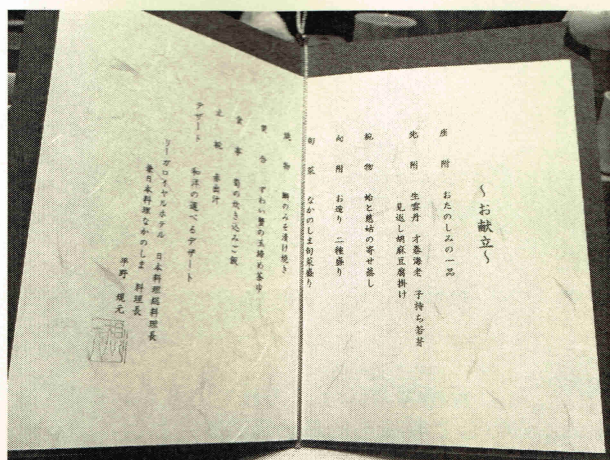 ～お献立～
座附 おたのしみの一品
先附 生雲丹 才巻海老 子持ち若芽
見返し胡麻豆腐掛け
椀物 蛤と慈姑の寄せ蒸し
向附 お造り 二種盛り
旬菜 なかのしま旬菜盛り
焼物 鰤のみそ漬け焼き
焚合 ずわい蟹の玉締め茶巾
食事 筍の炊き込みご飯
止椀 赤出汁
デザート 和洋の選べるデザート
リーガロイヤルホテル 日本料理総料理長
兼日本料理なかのしま 料理長
平野